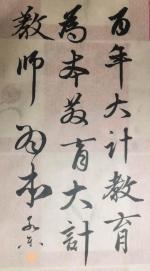 百年大计教育
為本教育大計
教师为本